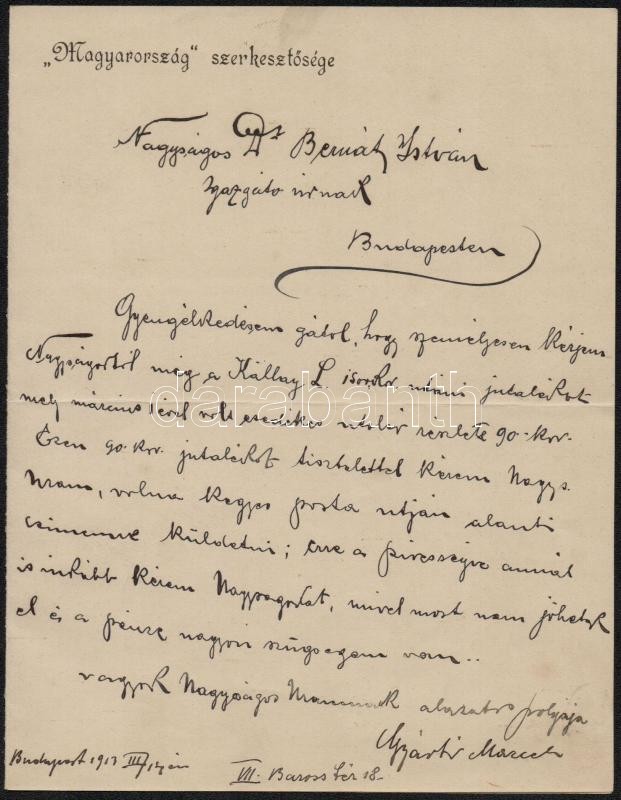 „Magyarország“ szerkesztősége
Nagyságos Dr Bernát István
Igazgató úrnak
Budapesten
Gyengélkedésem gátol, hogy személyesen kérjem
Nagyságodtól még a Kállay L. utáni jutalékot
mely március 1ével volt esedékes utolsó részlete 90-kor.
Ezen 90-kor. jutalékot tisztelettel kérem Nagys.
Uram, volna kegyes posta útján alanti
címemre küldetni; erre a szívességre annál
is inkább kérem Nagyságodat, mivel most nem jöhetek
el és a pénzre nagyon szügségem van..
vagyok Nagyságos Uramnak alázatos szolgája
Budapest 1913 III/
VII. Baross tér 18-
darabanth